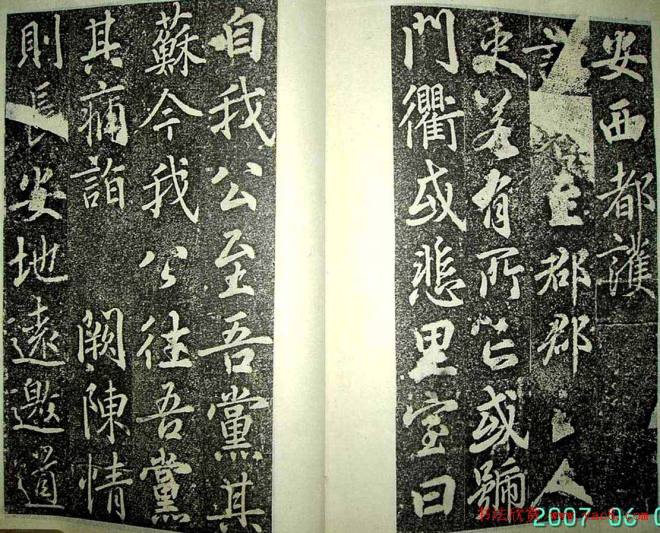 安西都護
至郡郡人
吏若有所亡或號
門衢或悲里室曰
自我公至吾黨其
蘇今我公往吾黨
其痡詣闕陳情
則長安地遠邀道
书法欣赏
2007 06 0